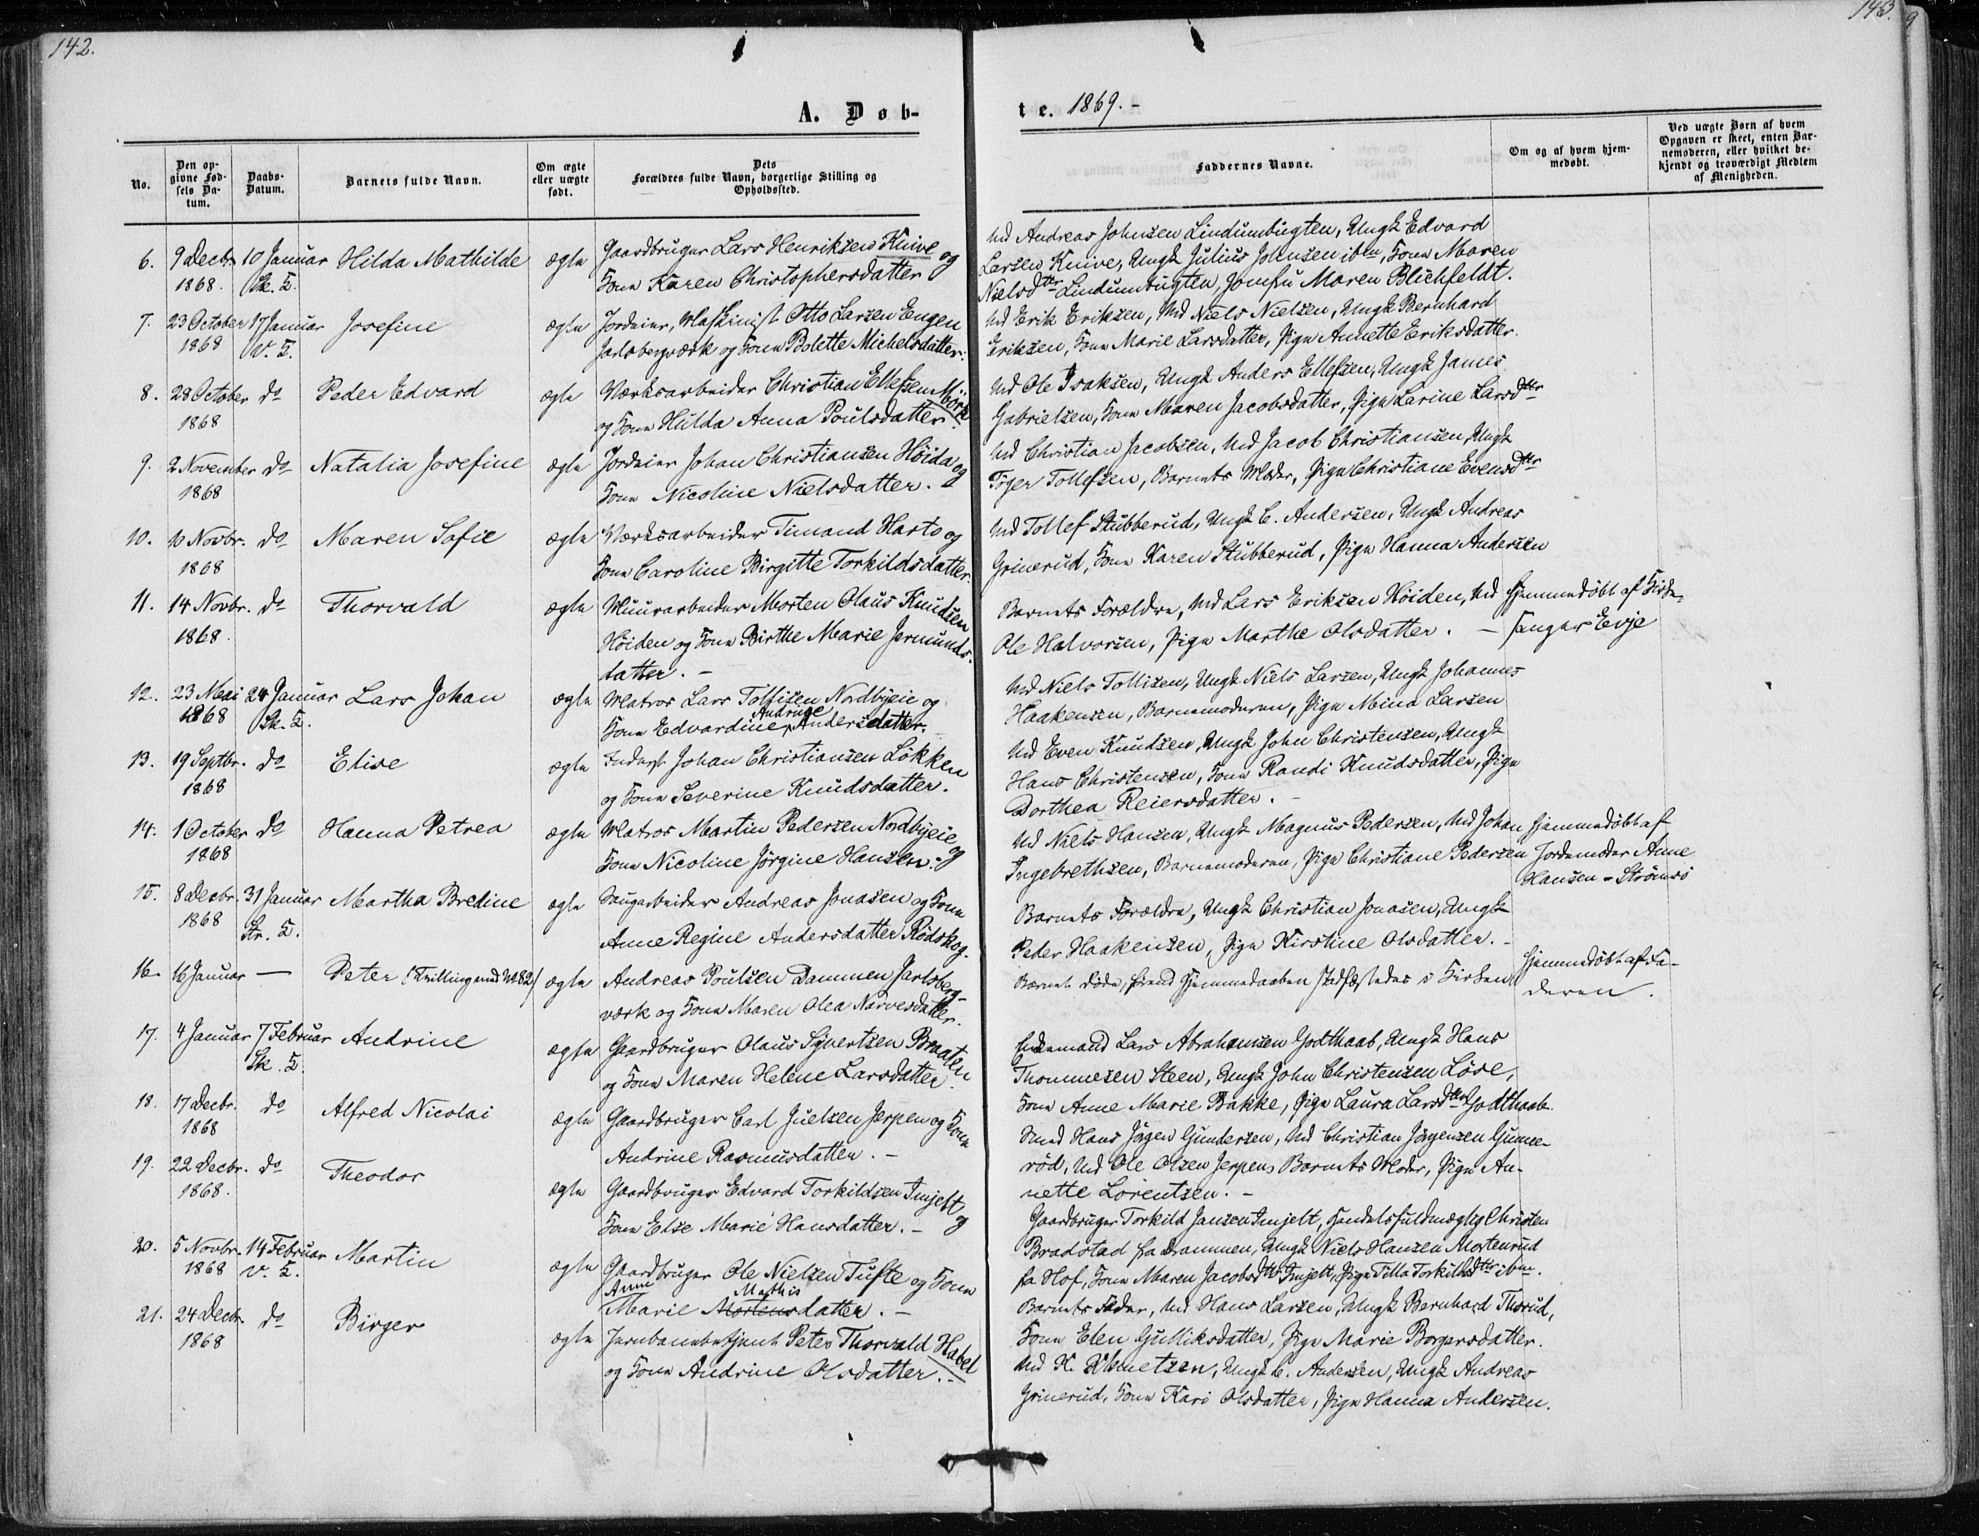 142.
143.
A. Døb-
te. 1869.-
No.
Den op-
givne Fød-
sels Da-
tum.
Daabs-
Datum.
Barnets fulde Navn.
Om ægte
eller uægte
født.
Dets
Forældres fulde Navn, borgerlige Stilling og
Opholdssted.
Faddernes Navne.
Om og af hvem hjem-
medøbt.
Ved uægte Børn af hvem
Opgaven er skeet, enten Bar-
nemoderen, eller hvilket be-
kjendt og troværdigt Medlem
af Menigheden.
6. 9 Decbr. 10 Januar Hilda Mathilde ægte Gaardbruger Lars Henriksen Knive og
1868. Sk. K. Kone Karen Christophersdatter
Md Andreas Johnsen Lindumbugten, Ungk Edvard
Larsen Knive, Ungk Julius Johnsen ibm, Kone Maren
Nielsdtr Lindumbugten, Jomfru Maren Blichfeldt.
7. 23 October 17 Januar Josefine ægte Jordeier, Maskinist Otto Larsen Engen
1868 V. K. Jarlsbergværk og Kone Bolette Michelsdatter.
Md Erik Eriksen, Md Niels Nielsen, Ungk Bernhard
Eriksen, Kone Marie Larsdatter, Pige Annette Eriksdatter.
8. 28 October do Peder Edvard ægte Værksarbeider Christian Ellefsen Mörk
1868 og Kone Hulda Anna Poulsdatter.
Md Ole Isaksen, Ungk Anders Ellefsen, Ungk James
Gabrielsen, Kone Maren Jacobsdatter, Pige Larine Larsdtr
9. 2 November do Natalia Josefine ægte Jordeier Johan Christiansen Höida og
1868 Kone Nicoline Nielsdatter.
Md Christian Jacobsen, Md Jacob Christiansen, Ungk
Töger Tollefsen, Barnets Moder, Pige Christiane Evensdtr
10. 10 Novbr. do Maren Sofie ægte Værksarbeider Timand Harto og
1868 Kone Caroline Birgitte Torkildsdatter
Md Tollef Stubberud, Ungk C. Andersen, Ungk Andreas
Grinerud, Kone Karen Stubberud, Pige Hanna Andersen
11. 14 Novbr. do Thorvald ægte Muurarbeider Morten Olaus Knudsen
1868. Höiden og Kone Birthe Marie Jermunds-
datter. -
Barnets Forældre, Md Lars Eriksen Höiden, Md Hjemmedöbt af Kirke-
Ole Halvorsen, Pige Marthe Olsdatter. - sanger Evje
12. 23 Mai 24 Januar Lars Johan ægte Matros Lars Tollisen Nordbyeie og
1868 Sk. K. Kone Edvardine Andrine Andersdatter.
Md Niels Tollisen, Ungk Niels Larsen, Ungk Johannes
Haakensen, Barnemoderen, Pige Mina Larsen
13. 19 Septbr. do Elise ægte Inderst Johan Christiansen Lökken
1868 og Kone Severine Knudsdatter.
Md Even Knudsen, Ungk John Christensen, Ungk
Hans Christensen, Kone Randi Knudsdatter, Pige
Dorthea Reiersdatter. -
14. 1 October do Hanna Petrea ægte Matros Martin Pedersen Nordbyeie og
1868 Kone Nicoline Jörgine Hansen.
Md Niels Hansen, Ungk Magnus Pedersen, Md Johan Hjemmedöbt af
Ingebrethsen, Barnemoderen, Pige Christiane Pedersen Jordemoder Anne
Hansen - Strömsö
15. 8 Decbr. 31 Januar Martha Bredine ægte Saugarbeider Andreas Jonasen og Kone
1868 Str. K. Anne Regine Andersdatter Rödskog.
Barnets Forældre, Ungk Christian Jonasen, Ungk
Peder Haakensen, Pige Kirstine Olsdatter. -
16. 16 Januar — Peter (Tvilling med No 82) ægte Andreas Poulsen Dammen Jarlsberg-
værk og Kone Maren Olea Narvesdatter.
Barnet döde, förend Hjemmedaaben stadfæstedes i Kirken Hjemmedöbt af Fa-
deren.
17. 4 Januar 7 Februar Andrine ægte Gaardbruger Olaus Syvertsen Braaten
Sk. K. og Kone Maren Helene Larsdatter.
Lars Abrahamsen Godthaab, Ungk Hans
Thommesen Steen, Ungk John Christensen Löse,
Kone Anne Marie Bakke, Pige Laura Larsdtr Godthaab.
18. 17 Decbr. do Alfred Nicolai ægte Gaardbruger Carl Juelsen Jerpen og Kone
1868 Andrine Rasmusdatter. -
Smed Hans Jörgen Gundersen, Md Christian Jörgensen Gunne-
röd, Md Ole Olsen Jerpen, Barnets Moder, Pige An-
nette Lorentsen. -
19. 22 Decbr. do Theodor ægte Gaardbruger Edvard Torkildsen Imjelt og
1868. Kone Else Marie Hansdatter. -
Gaardbruger Torkild Jansen Imjelt, Handelsfuldmægtig Christen
Bradstad fra Drammen, Ungk Niels Hansen Mortenrud
fra Hof, Kone Maren Jacobsdtr Imjelt, Pige Tilla Torkildsdtr ibm.
20. 5 Novbr. 14 Februar Martin ægte Gaardbruger Ole Nielsen Tufte og Kone
1868 V. K. Anne Marie Mortensdatter. - Mathis
Barnets Fader, Md Hans Larsen, Ungk Bernhard Thorud,
Kone Elen Gulliksdatter, Pige Marie Borgersdatter.
21. 24 Decbr. do Birger ægte Jernbanebetjent Peter Thorvald Habel
1868 og Kone Andrine Olsdatter. -
Md K. Klemetsen, Ungk C. Andersen, Ungk Andreas
Grinerud, Kone Kari Olsdatter, Pige Hanna Andersen.